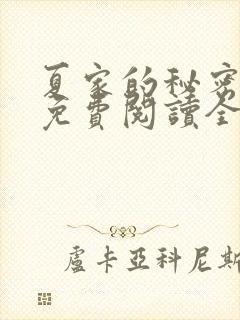 夏家的秘密
免費閱讀全
盧卡亞科尼斯